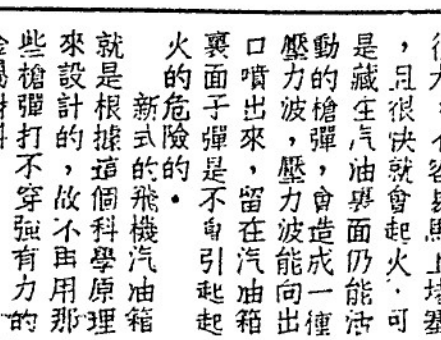 不容易馬上堵塞
，且很快就會起火，可
是藏在汽油裏面仍能活
動的槍彈，會造成一種
壓力波，壓力波能向出
口噴出來，留在汽油箱
裏面子彈是不會引起起
火的危險的。
新式的飛機汽油箱
就是根據這個科學原理
來設計的，故不再用那
些槍彈打不穿強有力的